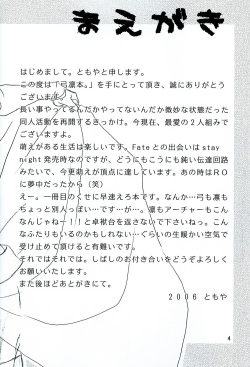 まえがき
はじめまして。ともやと申します。
この度は「弓凛本。」を手にとって頂き、誠にありがとう
ございます。
長い事やってるんだかやってないんだか微妙な状態だった
同人活動を再開するきっかけ。今現在、最愛の2人組みで
ございますよ。
萌えがある生活は楽しいです。Fateとの出会いはstay
night発売時なのですが、どうにもこうにも鈍い伝達回路
みたいで、今更萌えが頂点に達しています。あの時はRO
に夢中だったから（笑）
えー。一冊目のくせに早速えろ本です。なんか…弓も凛も
ちょっと別人っぽい…ですが…。凛もアーチャーもこんな
んじゃねぇぇ！と卓袱台を返さないで下さいねっ。こん
なふたりもいるのかもしれない…くらいの生暖かい空気で
受け止めて頂けると有難いです。
それではそれでは。しばしのお付き合いをどうぞよろしく
お願いいたします。
また後ほどあとがきにて。
2006 ともや
4